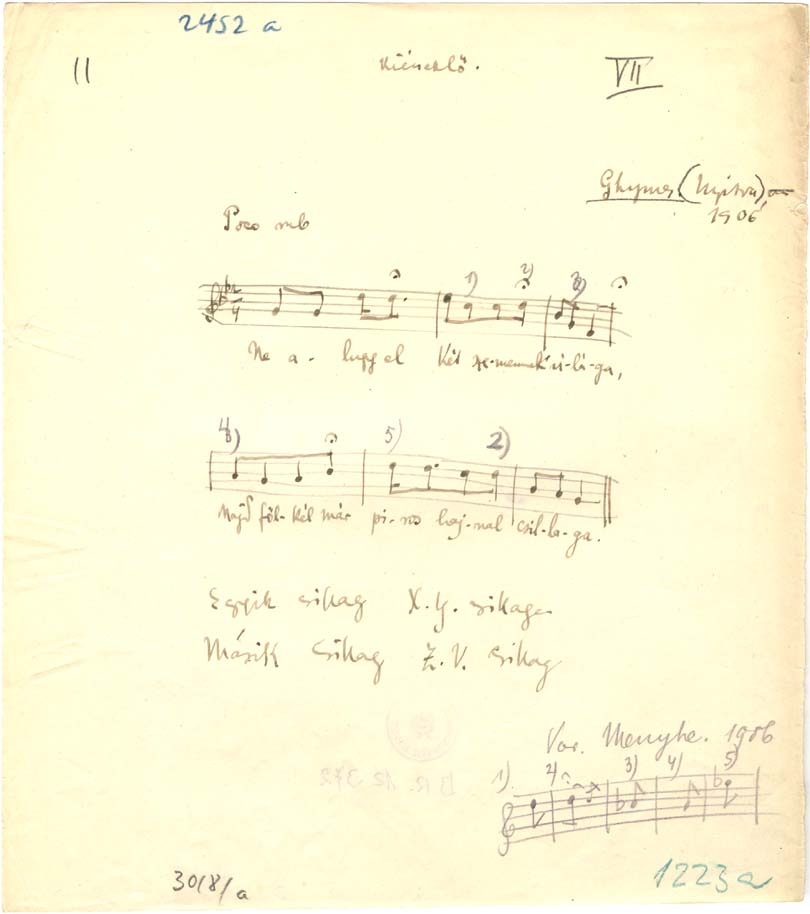 2452 a
11
Kiéneklő.
VII
Ghymes (Nyitra),
1906
Poco rub
1) 2) 3)
Ne a- lugy el Két sze-memnek vi-lá-ga,
4) 5) 2)
Majd föl-kél már pi-ros haj-nal csil-la-ga.
Egyik csillag X. Y. csillaga
Másik csillag Z. V. csillag
Var. Menyhe. 1906
1) 2) 3) 4) 5)
3018/a
1223a